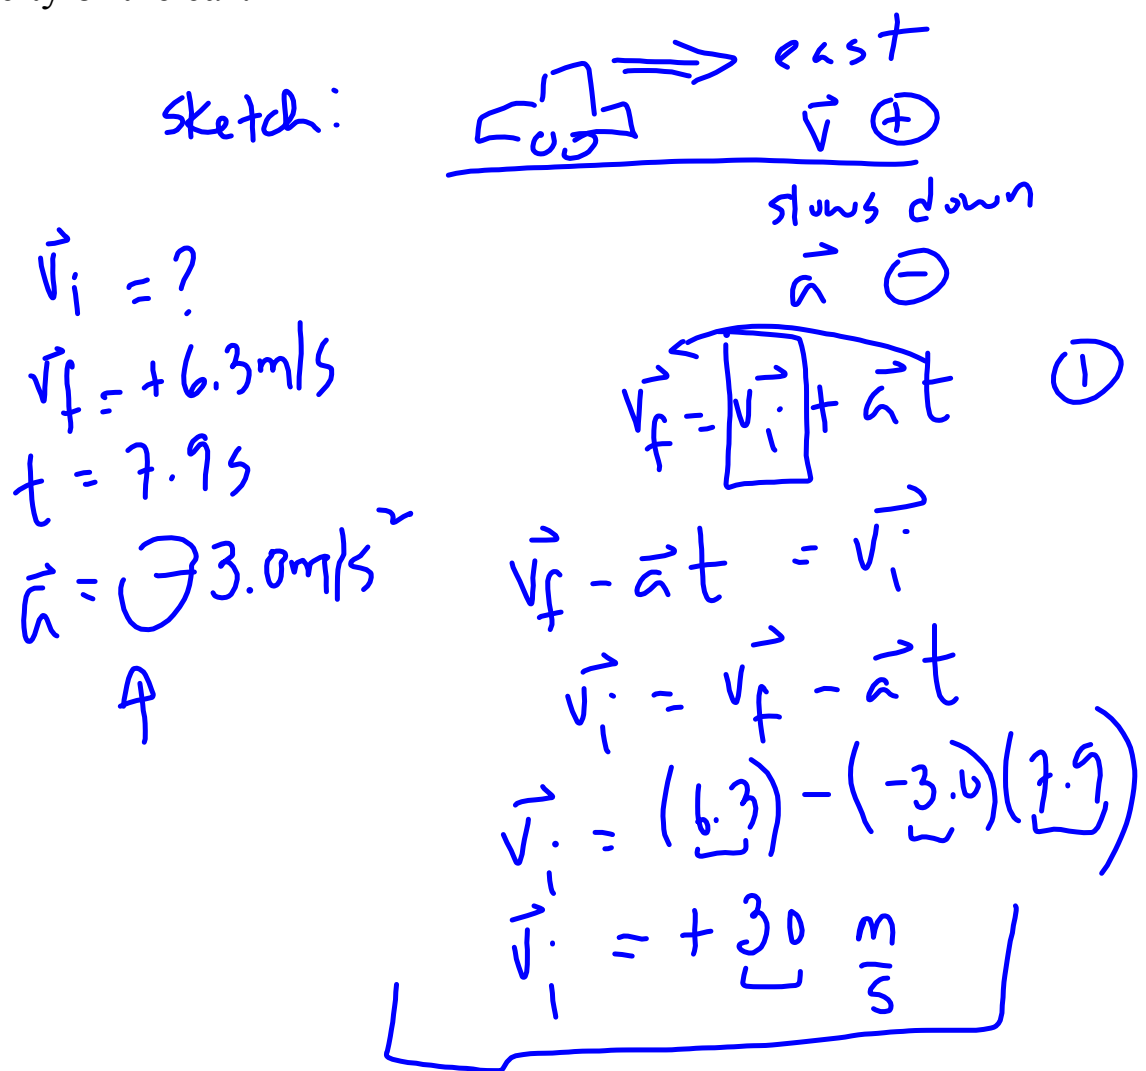 sketch:
east
v⃗ ⊕
slows down
a⃗ ⊖
v⃗i = ?
v⃗f = +6.3 m/s
t = 7.9 s
a⃗ = -3.0 m/s²
v⃗f = v⃗i + a⃗ t ①
v⃗f - a⃗ t = v⃗i
v⃗i = v⃗f - a⃗ t
v⃗i = (6.3) - (-3.0)(7.9)
v⃗i = +30 m/s